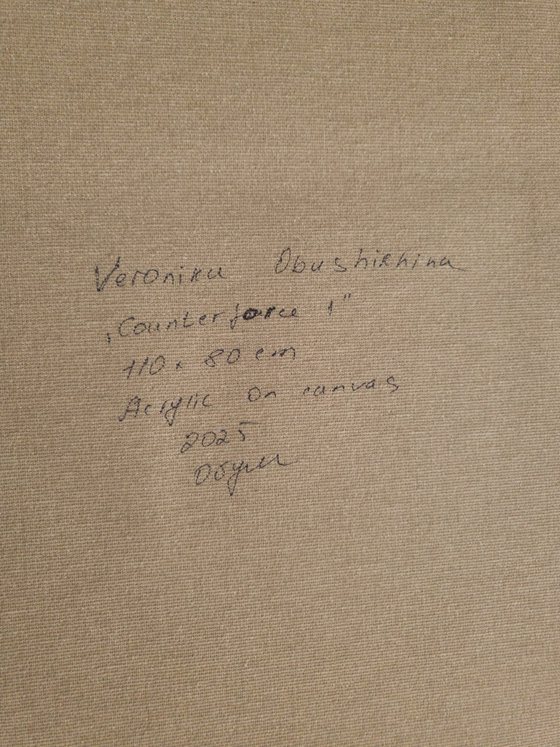 Veronika Obushikhina
„Counterforce 1"
110 x 80 cm
Acrylic on canvas
2025